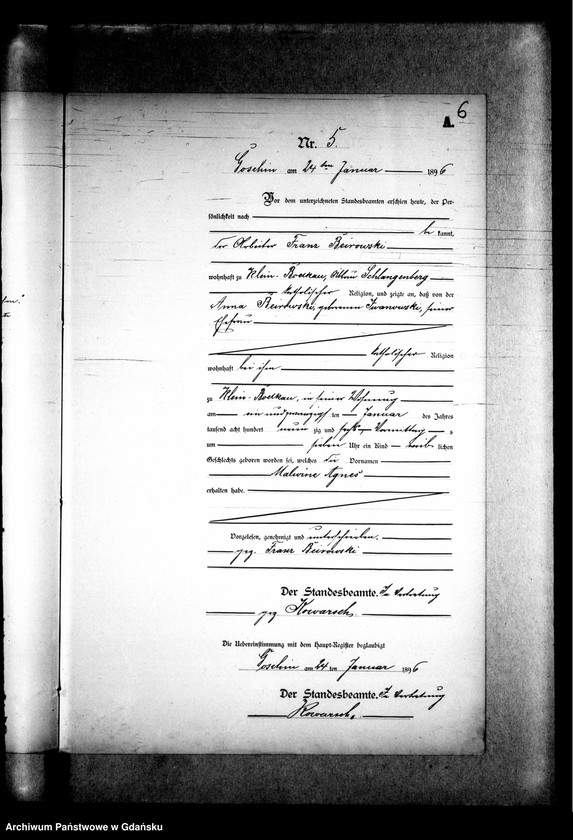 A. 6
Nr. 5.
Goschin am 24 ten Januar 1896
Vor dem unterzeichneten Standesbeamten erschien heute, der Per-
sönlichkeit nach
be kannt,
der Arbeiter Franz
wohnhaft zu Klein-Roelkau, Schlangenberg
katholischer Religion, und zeigte an, daß von der
Anna geborenen Iwanowski, seiner
Ehefrau
katholischer Religion
wohnhaft bei ihm
zu Klein-Roelkau, in seiner Wohnung
am ein und zwanzigsten Januar des Jahres
tausend acht hundert neun zig und sechs Vormittag s
um sieben Uhr ein Kind weib lichen
Geschlechts geboren worden sei, welches die Vornamen
Malwine Agnes
erhalten habe.
Vorgelesen, genehmigt und unterschrieben.
gez. Franz
Der Standesbeamte. In Vertretung
gez. Kowarsch.
Die Uebereinstimmung mit dem Haupt-Register beglaubigt
Goschin am 24 ten Januar 1896
Der Standesbeamte. In Vertretung
Kowarsch.
Archiwum Państwowe w Gdańsku